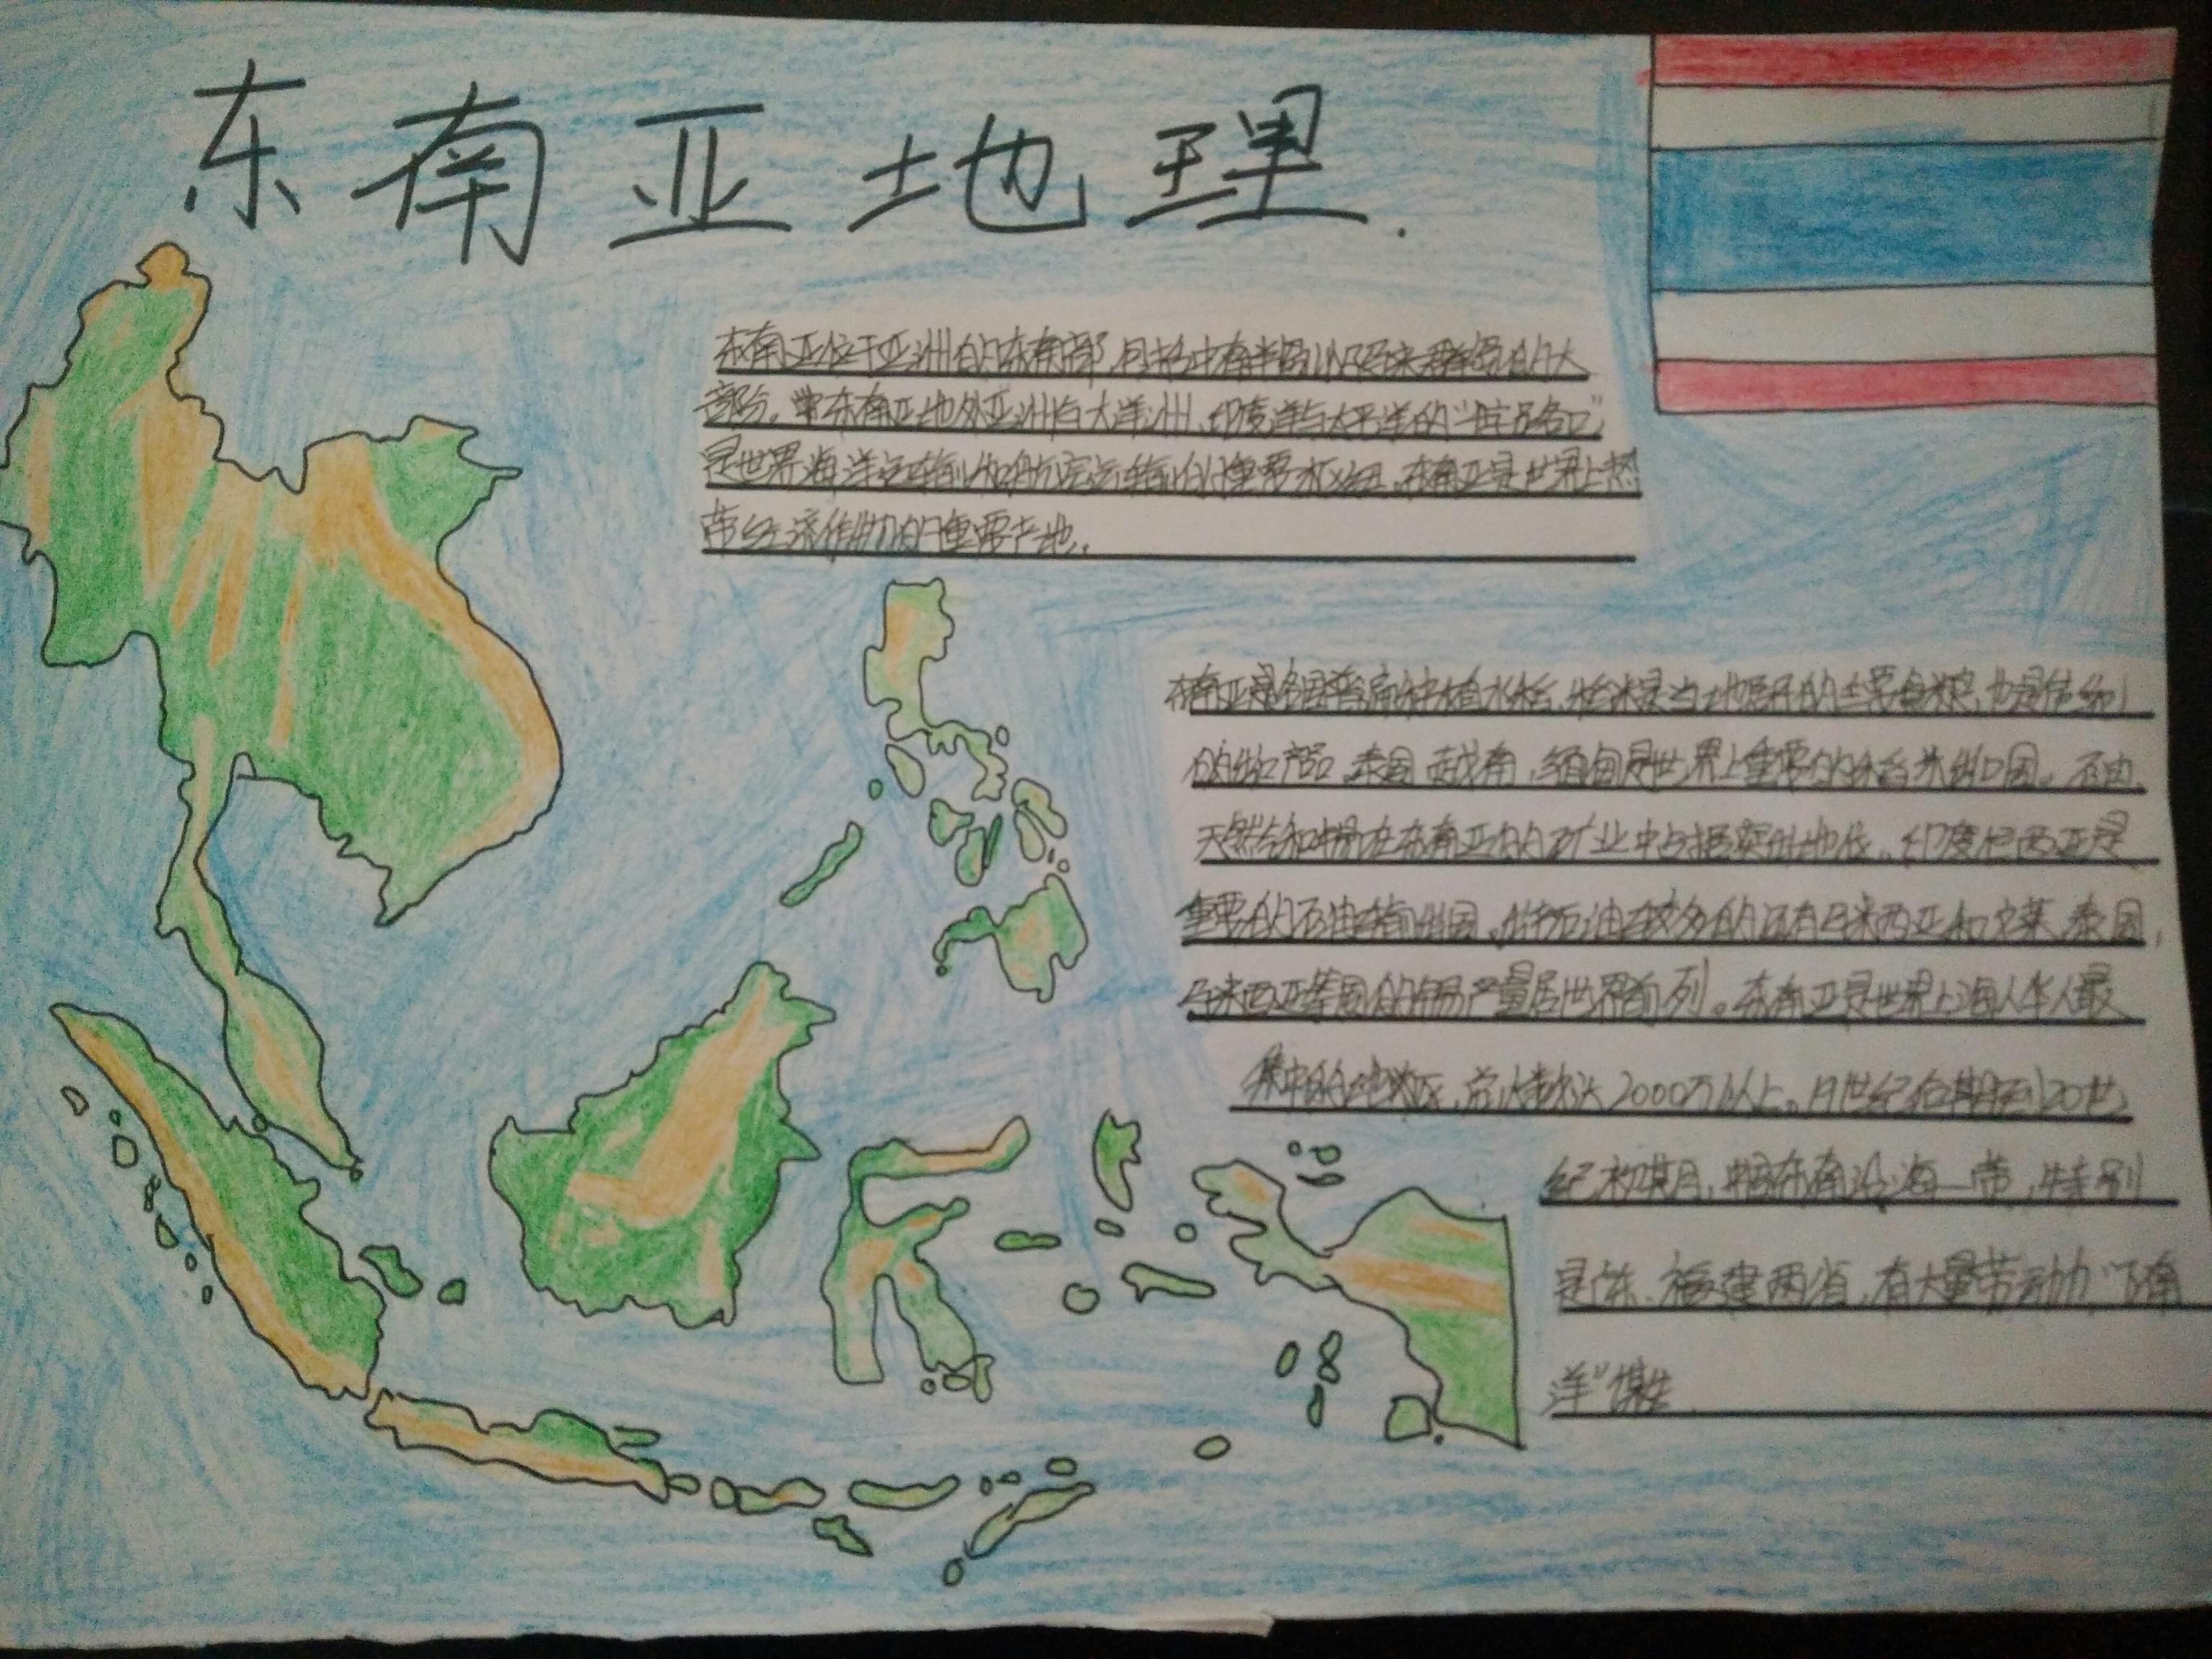 东南亚地理.
东南亚位于亚洲的东南部,包括中南半岛以及马来群岛的大
部分。东南亚地处亚洲与大洋洲、印度洋与太平洋的“十字路口”
是世界海洋运输和航空运输的重要枢纽。东南亚是世界上热
带经济作物的重要产地。
东南亚是各国普遍种植水稻,稻米是当地居民的主要食粮,也是传统
的出口产品。泰国、越南、缅甸是世界上重要的稻米出口国。石油、
天然气和锡在东南亚的矿业中占据突出地位。印度尼西亚是
重要的石油输出国。出产石油较多的还有马来西亚和文莱。泰国、
马来西亚等国的锡产量居世界前列。东南亚是世界上海外华人最
集中的地区,总人数达2000万以上。19世纪后期到20世
纪初期,中国东南沿海一带,特别
是广东、福建两省,有大量劳动力“下南
洋”谋生